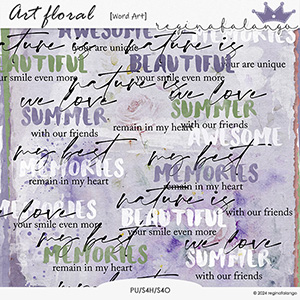 Art floral [Word Art]
reginafalango
AWESOME
your are unique
nature is
nature is
BEAUTIFUL
your are unique
your smile even more
BEAUTIFUL
your smile even more
we love
SUMMER
we love
with our friends
SUMMER
remain in my heart
with our friends
AWESOME
my best
MEMORIES
my best
remain in my heart
MEMORIES
remain in my heart
nature is
MEMORIES
we love
BEAUTIFUL
your smile even more
SUMMER
your smile even more
we love
with our friends
SUMMER
my best
remain in my heart
MEMORIES
with our friends
remain in my heart
PU/S4H/S4O
© 2024 reginafalango